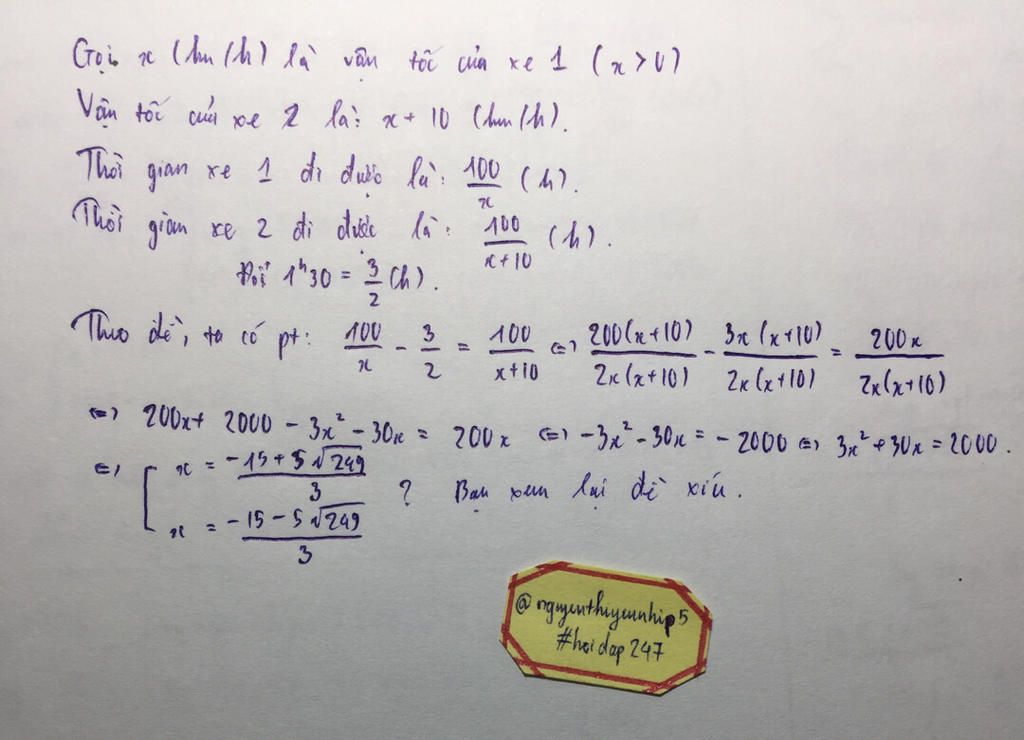 Gọi x (km/h) là vận tốc của xe 1 (x>0)
Vận tốc của xe 2 là: x + 10 (km/h).
Thời gian xe 1 đi được là: 100/x (h).
Thời gian xe 2 đi được là: 100/(x+10) (h).
Đổi 1h30 = 3/2 (h).
Theo đề, ta có pt: 100/x - 3/2 = 100/(x+10) <=> 200(x+10)/2x(x+10) - 3x(x+10)/2x(x+10) = 200x/2x(x+10)
<=> 200x + 2000 - 3x² - 30x = 200x <=> -3x² - 30x = -2000 <=> 3x² + 30x = 2000.
<=> [ x = (-15 + 5√249)/3
x = (-15 - 5√249)/3 ? Bạn xem lại đề xíu.
@nguyenthiyennhip5
#hoidap247